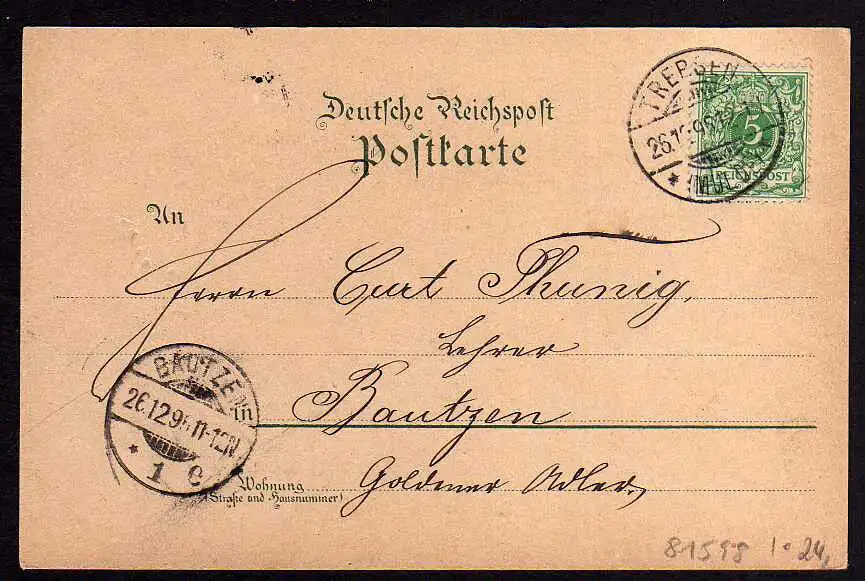 Deutsche Reichspost
Postkarte
TREBSEN
26.12.96
* (MULDE)
5
REICHSPOST
An
Herrn Curt Thunig,
Lehrer
in Bautzen
Goldener Adler.
Wohnung
(Straße und Hausnummer)
BAUTZEN
26.12.96. 11-12N
* 1 c
81598